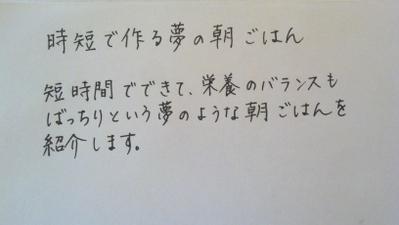 時短で作る夢の朝ごはん
短時間でできて、栄養のバランスも
ばっちりという夢のような朝ごはんを
紹介します。